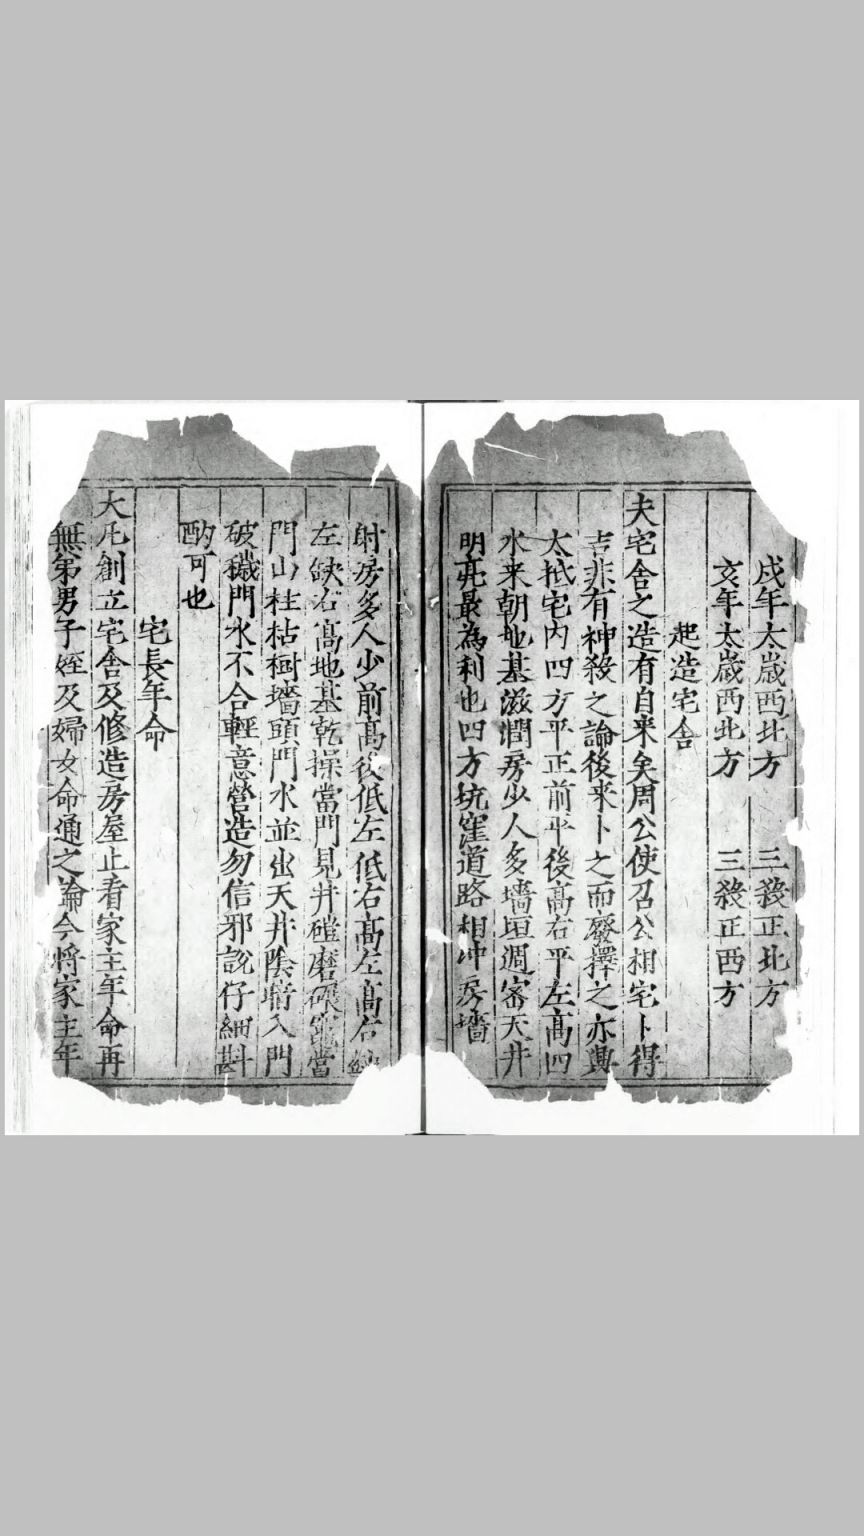 戌年太歲西北方　三殺正北方
亥年太歲西北方　三殺正西方
起造宅舍
夫宅舍之造有自来矣周公使召公相宅卜得
吉非有神殺之論後来卜之而廢擇之亦
太抵宅内四方平正前平後髙右平左髙四
水来朝地基滋潤房少人多墻垣週宻天井
明亮最為利也四方坑窪道路相冲房墻
射房多人少前髙後低左低右髙左髙右
左缺右髙地基乾操當門見井磑磨碾竈當
門山柱枯樹墻頭門水並出天井陰暗入門
破穢門水不合輕意營造勿信邪説仔細斟
酌可也
宅長年命
大凢創立宅舍及修造房屋止看家主年命再
無弟男子姪及婦女命通之論今将家主年